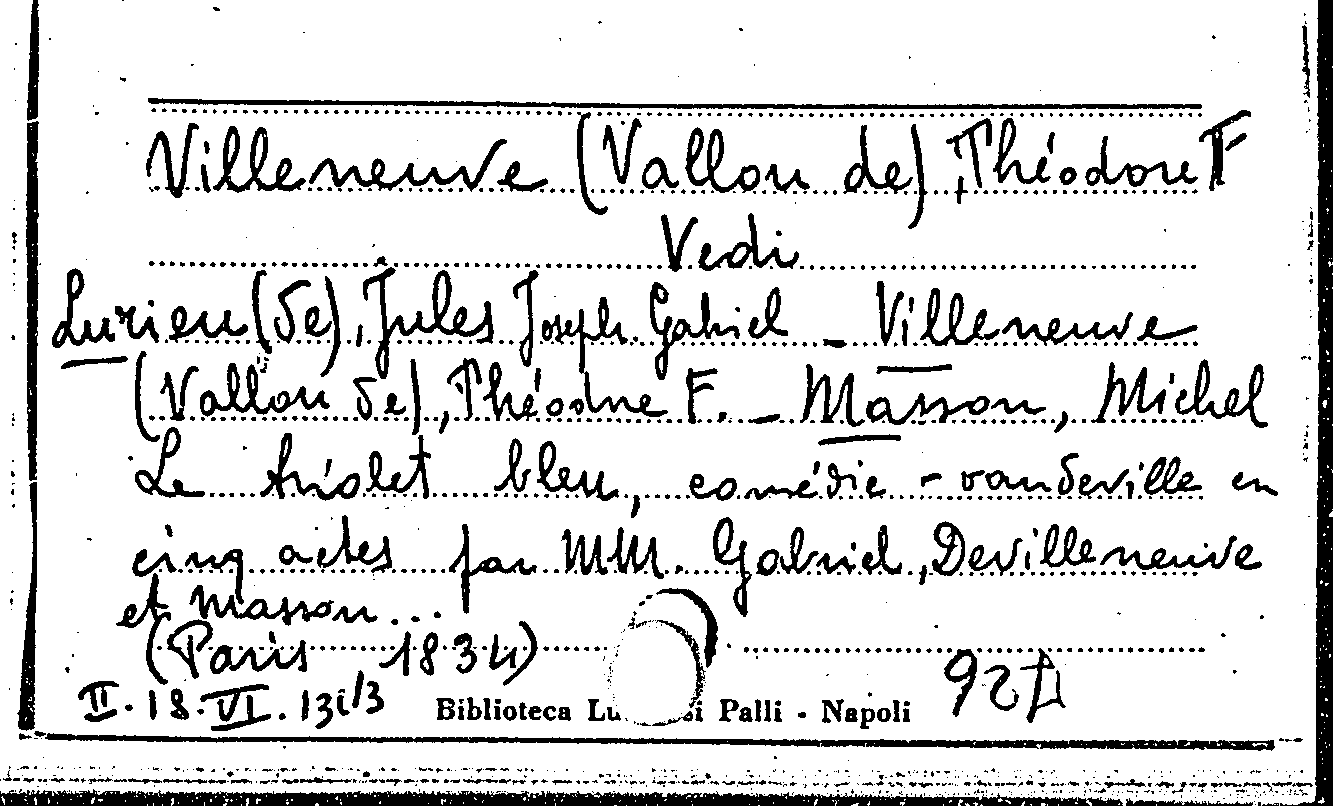 Villeneuve (Vallou de), Théodore F
Vedi
Lurieu (de), Jules Joseph Gabriel - Villeneuve
(Vallou de), Théodore F. - Masson, Michel
Le triolet bleu, comédie - vaudeville en
cinq actes par MM. Gabriel, Devilleneuve
et Masson...
(Paris 1834)
II. 18. VI. 13i/3
Biblioteca Lu si Palli - Napoli